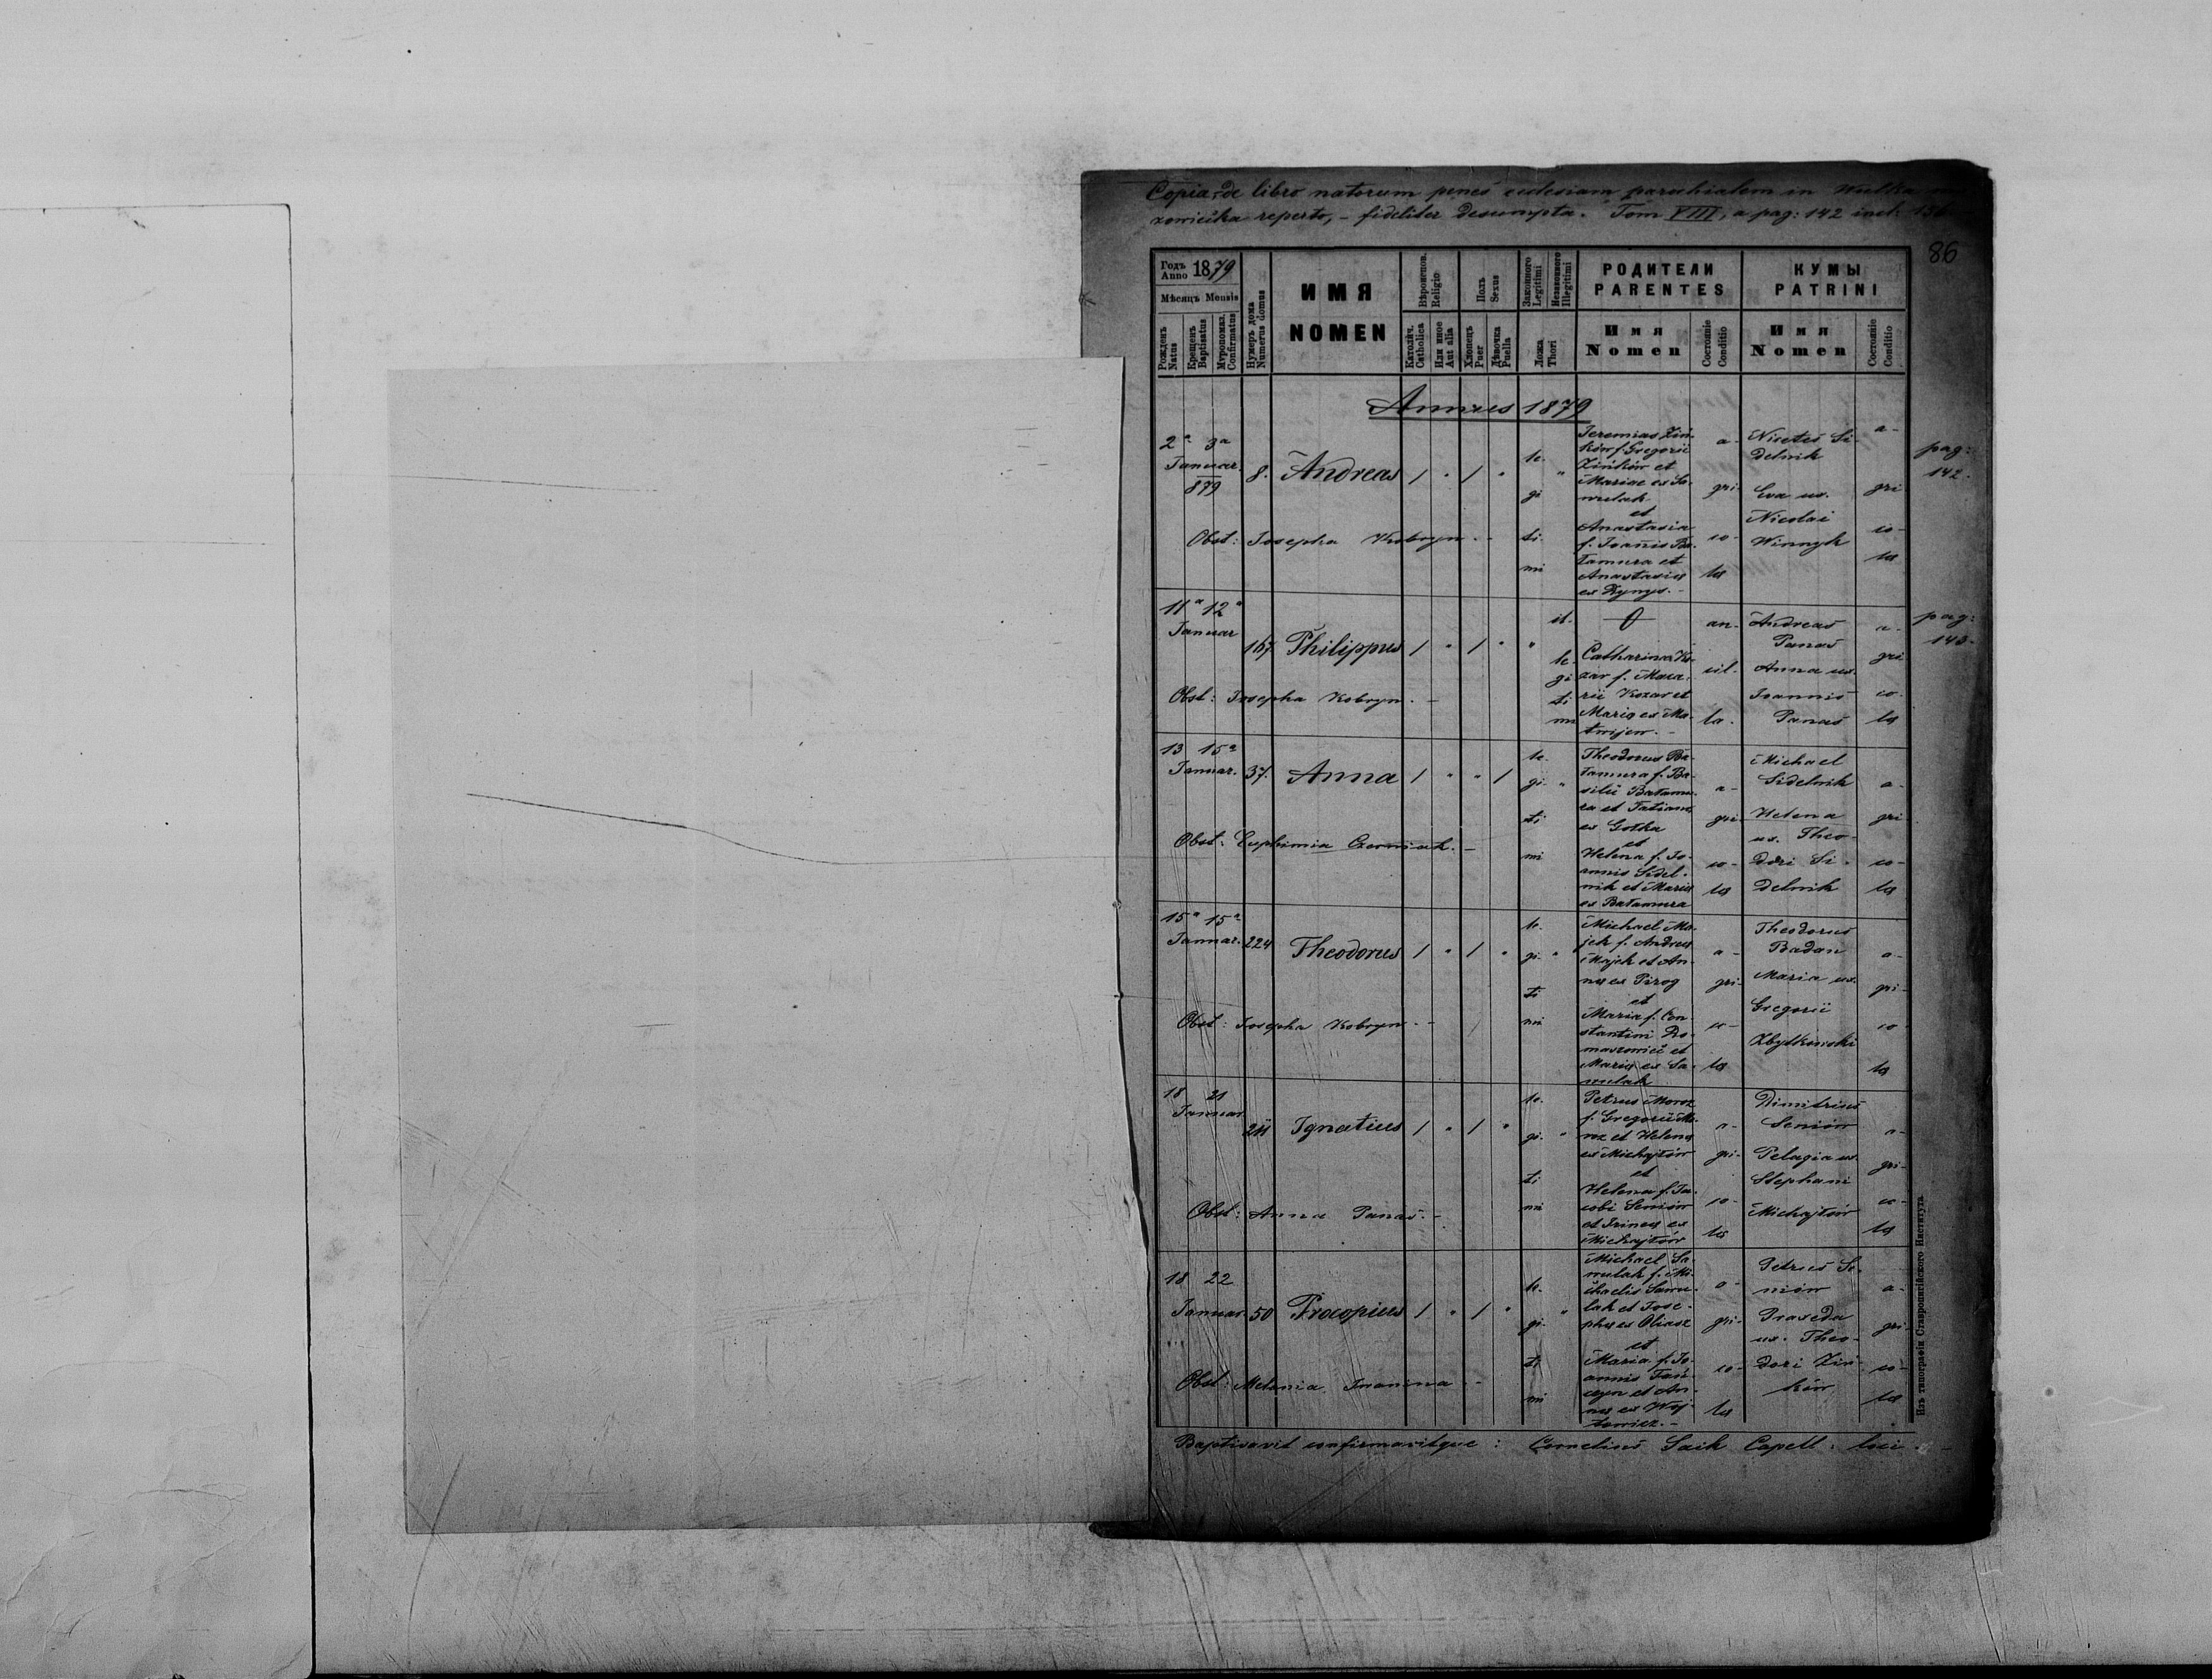 Copia de libro natorum penes ecclesiam parochialem in Wulka
zowiecka reperto, - fideliter descumpta. Tom VIII, a pag: 142 incl: 156
86
Годъ Anno 1879
Мѣсяцъ Mensis
Рожденъ Natus
Крещенъ Baptisatus
Мѵропомаз. Confirmatus
Нумеръ дома Numerus domus
ИМЯ
NOMEN
Вѣроиспов. Religio
Католич. Catholica
Или иное Aut alia
Полъ Sexus
Хлопецъ Puer
Дѣвочка Puella
Законного Legitimi
Незаконного Illegitimi
Ложа Thori
РОДИТЕЛИ
PARENTES
Имя
Nomen
Состояніе Conditio
КУМЫ
PATRINI
Имя
Nomen
Состояніе Conditio
Annus 1879
2a 3a
Januar.
879
8. Andreas 1 " 1 "
le- gi ti- mi
Jeremias Ziń-
ków f. Gregorii
Zińków et
Mariae ex Sa-
mulak
et
Anastasia
f. Joannis Ba-
tamura et
Anastasia
ex Dynys. -
a- gri- co- la
Nicetas Si-
delnik
Eva ux.
Nicolai
Winnyk
a- gri co- la
pag:
142.
Obst: Josepha Kobryn. -
11a 12a
Januar
167 Philippus 1 " 1 " "
il- le- gi ti mi
O
Catharina Ko-
zar f. Maca-
rii Kozar et
Maria ex Ma-
twijew. -
an- cil- la.
Andreas
Panas
Anna ux.
Joannis
Panas
a- gri co- la
pag:
143.
Obst: Josepha Kobryn. -
13 15a
Januar. 37. Anna 1 " " 1
le- gi- " ti mi
Theodorus Ba-
tamura f. Ba-
silii Batamu-
ra et Tatiana
ex Gotka
et
Helena f. Jo-
annis Sidel-
nik et Maria
ex Batamura
a- gri- co- la
Michael
Sidelnik
Helena
ux. Theo-
dori Si-
delnik
a- gri co- la
Obst: Euphimia Czerniak. -
15a 15a
Januar. 224 Theodorus 1 " 1 "
le- gi- " ti mi
Michael Ma-
jek f. Andrea
Majek et An-
na ex Pirog
et
Maria f. Con-
stantini Ro-
maszowicz et
Maria ex Sa-
mulak
a- gri- co- la
Theodorus
Badan
Maria ux.
Gregorii
Zbytkowski
a- gri- co- la
Obst: Josepha Kobryn. -
18 21
Januar
211 Ignatius 1 " 1 "
le- gi- " ti mi
Petrus Moroz
f. Gregorii Mo-
roz et Helena
ex Michajtów
et
Helena f. Ja-
cobi Seniów
et Irina ex
Michajtów
a- gri- co- la
Dimitrius
Seniów
Pelagia ux.
Stephani
Michajtów
a- gri- co- la
Obst: Anna Panas. -
18 22
Januar. 50 Procopius 1 " 1 "
le- gi- " ti mi
Michael Sa-
mulak f. Mi-
chaelis Samu-
lak et Jose-
pha ex Oliasz
et
Maria f. Jo-
annis
et An-
na ex Woj-
towicz. -
a- gri- co- la
Petrus Se-
niów
Praxeda
ux. Theo-
dori Ziń-
ków
a- gri- co- la
Obst: Melania Iwanina -
Baptisavit confirmavitque: Cornelius Saik Capell: loci. -
Изъ типографіи Ставропигійского Института